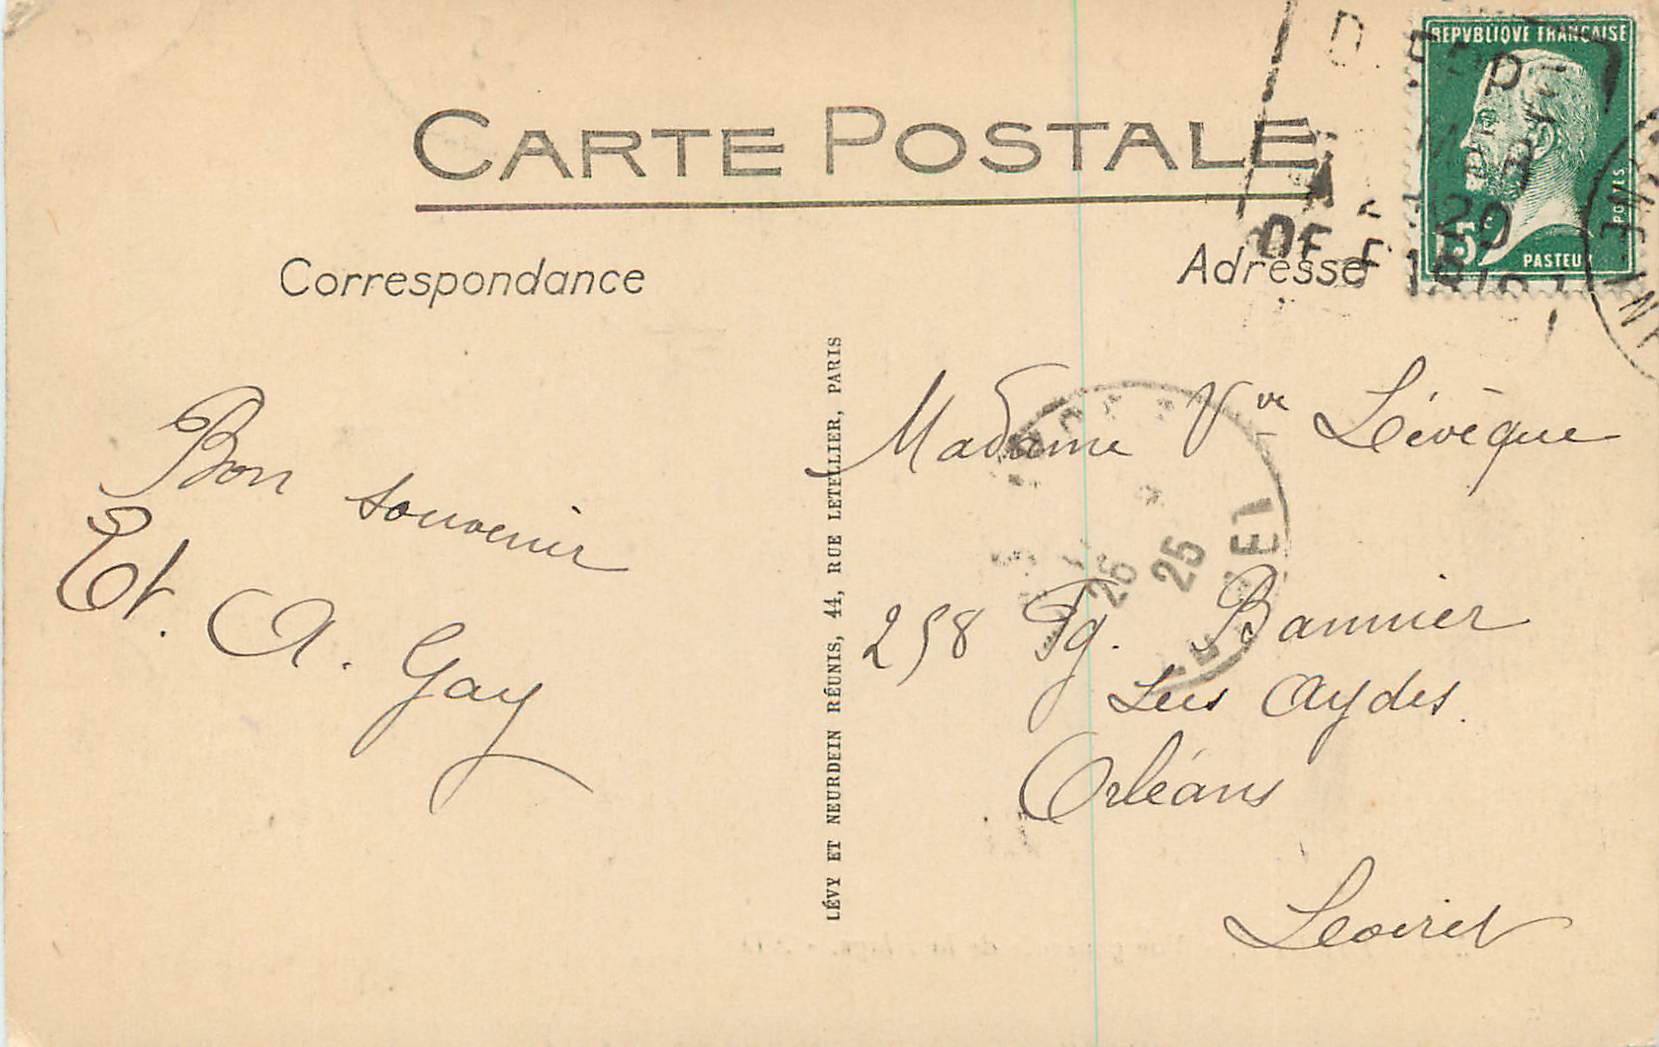 REPVBLIQVE FRANÇAISE
POSTES
15c
PASTEUR
CARTE POSTALE
Correspondance
Adresse
Bon souvenir
Et. A. Gay
LÉVY ET NEURDEIN RÉUNIS, 44, RUE LETELLIER, PARIS
Madame Vve Lévêque
258 Fg. Bannier
Les Aydes.
Orléans
Loiret
DE
20
26
25